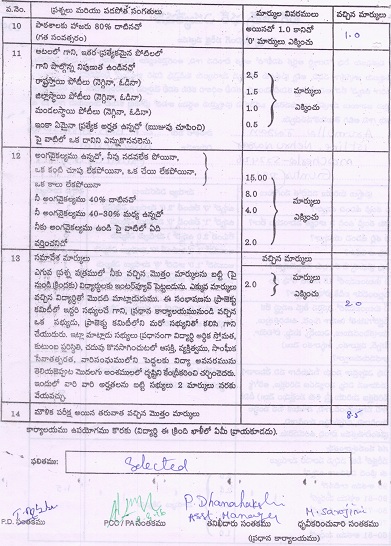 వ.నెం. ప్రశ్నలు మరియు పదపోత సంగతులు మార్కుల వివరములు వచ్చిన మార్కులు
10 పాఠశాలకు హాజరు 80% దాటినచో అయినచో 1.0 కానిచో 1.0
(గత సంవత్సరం) '0' మార్కులు ఎక్కించు
11 ఆటలలో గాని, ఇతర ప్రత్యేకమైన పోటీలలో
గాని పాల్గొన్న నిపుణుత ఉండినచో
రాష్ట్రస్థాయి పోటీలు (నెగ్గినా, ఓడినా) 2.5
జిల్లాస్థాయి పోటీలు (నెగ్గినా, ఓడినా) 1.5 మార్కులు
మండలస్థాయి పోటీలు (నెగ్గినా, ఓడినా) 1.0 ఎక్కించు
ఇంకా ఏమైనా ప్రత్యేక అర్హత ఉన్నచో (ఋజువు చూపించి) 0.5
పై వాటిలో ఒక దానిని ఎన్నుకొనవలెను.
12 అంగవైకల్యము ఉన్నచో, నీవు నడవలేక పోయినా,
ఒక కంటి చూపు లేక పోయినా, ఒక చేయి లేకపోయినా, 15.00
ఒక కాలు లేకపోయినా
నీ అంగవైకల్యము 40% దాటినచో 8.0 మార్కులు
నీ అంగవైకల్యము 40-30% మధ్య ఉన్నచో 4.0 ఎక్కించు
నీకు అంగవైకల్యము ఉండి పై వాటిలో ఏది
వర్తించనిచో 2.0
13 సమావేశ మార్కులు వచ్చిన మార్కులు
ఎగువ ప్రశ్న పత్రములో నీకు వచ్చిన మొత్తం మార్కులను బట్టి (పై 2.0 మార్కులు
నుండి క్రిందకు) విద్యార్థులకు ఇంటర్వ్యూవ్ పెట్టబడును. ఎక్కువ మార్కులు ఎక్కించు
వచ్చిన విద్యార్థితో మొదటి మాట్లాడుదుము. ఈ సంభాషణను ప్రాజెక్టు
కమిటీలో ఇద్దరి సభ్యులచే గాని, ప్రధాన కార్యాలయమునుండి వచ్చిన 2.0
ఒక సభ్యుడు, ప్రాజెక్టు కమిటీలోని మరో సభ్యునితో కలిసి గాని
చేయుదురు. ఇట్లా మాట్లాడు సభ్యులు ప్రధానంగా విద్యార్థి ఆర్థిక స్తోమత,
కుటుంబ పరిస్థితి, చదువు కొనసాగించుటలో ఆసక్తి, వ్యక్తిత్వము, సాంఘీక
ఇందులో వారి వారి అర్హతలను బట్టి సభ్యులు 2 మార్కులు వరకు
వేయవచ్చు.
14 మౌళిక పరీక్ష అయిన తరువాత వచ్చిన మొత్తం మార్కులు 8.5
కార్యాలయము ఉపయోగము కొరకు (విద్యార్థి ఈ క్రింది ఖాళీలో ఏమీ వ్రాయకూడదు).
ఫలితము: Selected
P. Dhanahakshi
Asst. Manager M. Sarojini
P.D. సంతకము PCO / PA సంతకము తనిఖీదారు సంతకము ధృవీకరించువారి సంతకము
(ప్రధాన కార్యాలయము)